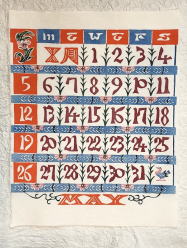 m T W T F S
五月 1 2 3 4
5 6 7 8 9 10 11
12 13 14 15 16 17 18
19 20 21 22 23 24 25
26 27 28 29 30 31
MAY